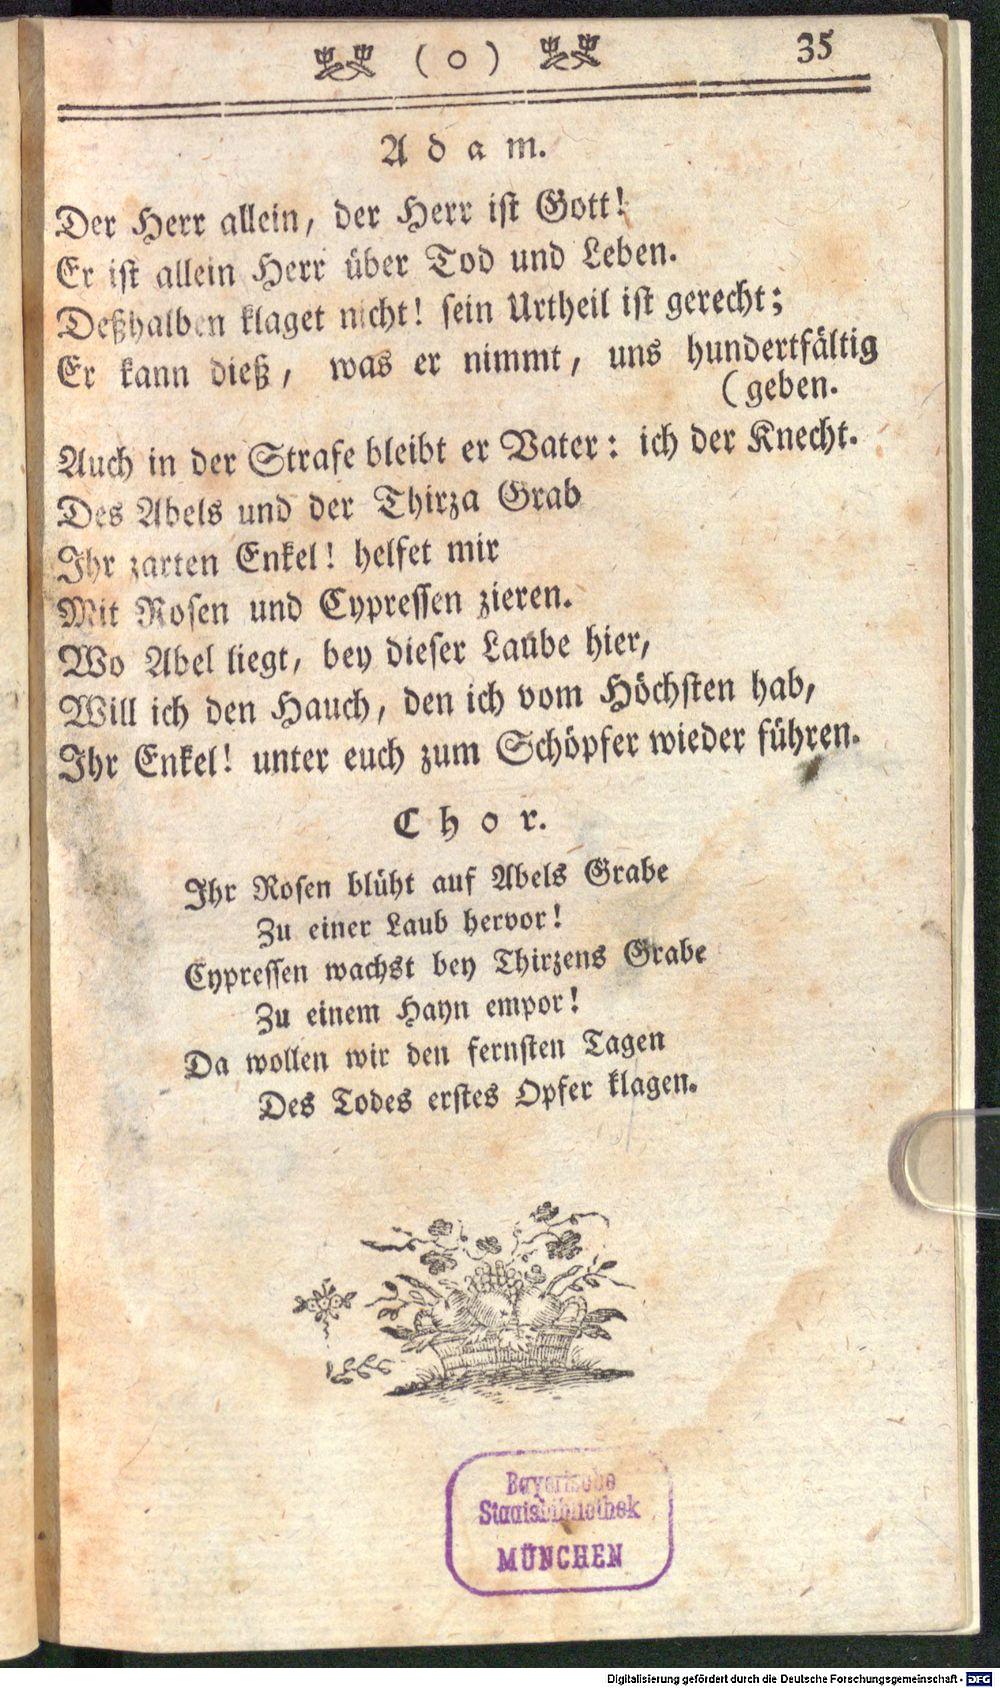 ( o ) 35
Adam.
Der Herr allein, der Herr ist Gott!
Er ist allein Herr über Tod und Leben.
Deßhalben klaget nicht! sein Urtheil ist gerecht;
Er kann dieß, was er nimmt, uns hundertfältig
(geben.
Auch in der Strafe bleibt er Vater: ich der Knecht.
Des Abels und der Thirza Grab
Ihr zarten Enkel! helfet mir
Mit Rosen und Cypressen zieren.
Wo Abel liegt, bey dieser Laube hier,
Will ich den Hauch, den ich vom Höchsten hab,
Ihr Enkel! unter euch zum Schöpfer wieder führen.
Chor.
Ihr Rosen blüht auf Abels Grabe
Zu einer Laub hervor!
Cypressen wachst bey Thirzens Grabe
Zu einem Hayn empor!
Da wollen wir den fernsten Tagen
Des Todes erstes Opfer klagen.
Bayerische
Staatsbibliothek
MÜNCHEN
Digitalisierung gefördert durch die Deutsche Forschungsgemeinschaft - DFG